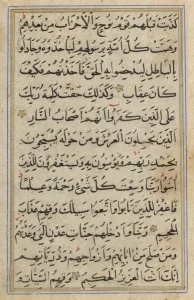 كذبت قبلهم قوم نوح والاحزاب من بعدهم
وهمت كل امة برسولهم ليأخذوه وجادلوا
بالباطل ليدحضوا به الحق فاخذتهم فكيف
كان عقاب وكذلك حقت كلمة ربك
على الذين كفروا انهم اصحاب النار
الذين يحملون العرش ومن حوله يسبحون
بحمد ربهم ويؤمنون به ويستغفرون للذين
امنوا ربنا وسعت كل شيء رحمة وعلما
فاغفر للذين تابوا واتبعوا سبيلك وقهم عذاب
الجحيم ربنا وادخلهم جنات عدن التي وعدتهم
ومن صلح من ابائهم وازواجهم وذرياتهم
انك انت العزيز الحكيم وقهم السيئات